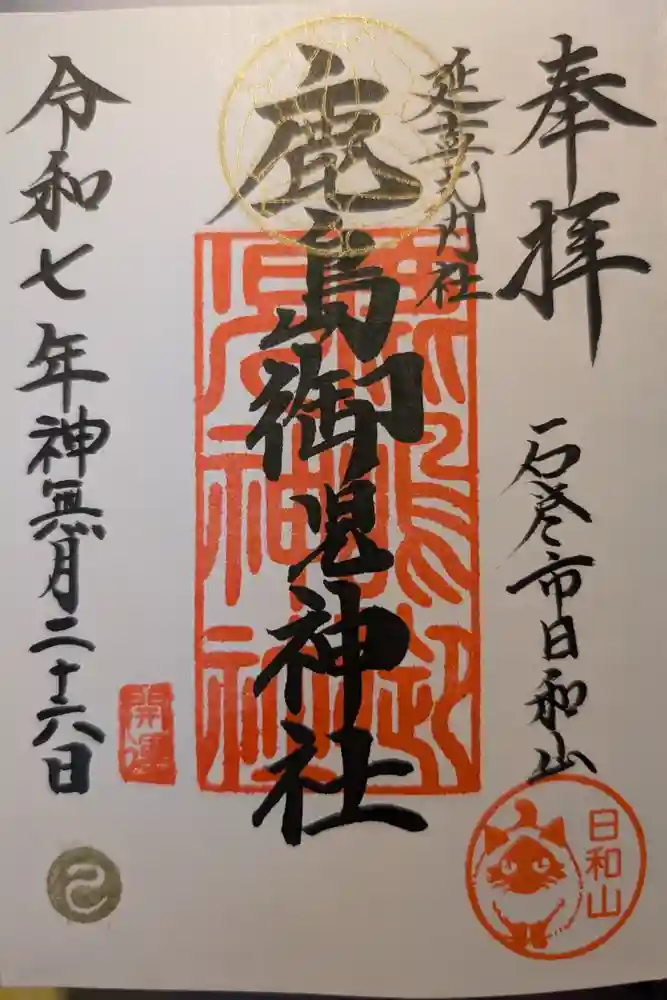 奉拝
石巻市日和山
日和山
延喜式内社
鹿島御児神社
令和七年神無月二十六日
開運
巳